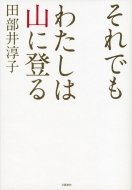 それでも
わたしは
山に登る
田部井淳子